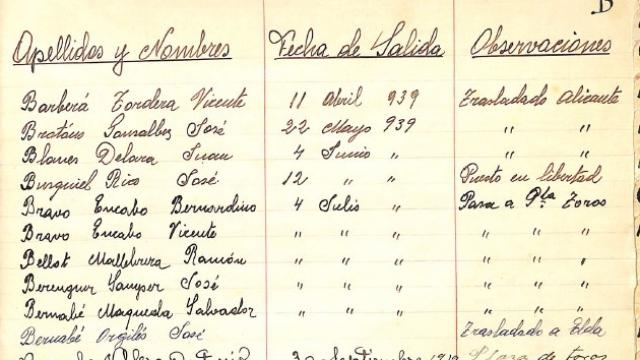 B
Apellidos y Nombres Fecha de Salida Observaciones
Barberá Tordera Vicente 11 Abril 939 Trasladado Alicante
Brotóns Gonsalbes José 22 Mayo 939 " "
Blanes Delara Juan 4 Junio " " "
Busquiel Rico José 12 " " Puesto en libertad
Bravo Encabo Bernardino 4 Julio " Pasa a Pla Toros
Bravo Encabo Vicente " " " " " "
Bellot Mallebrera Ramón " " " " " "
Berenguer Samper José " " " " " "
Bernabé Maqueda Salvador " " " " " "
Bernabé Orgilés José Trasladado a Elda
3 Septiembre Plaza de toros